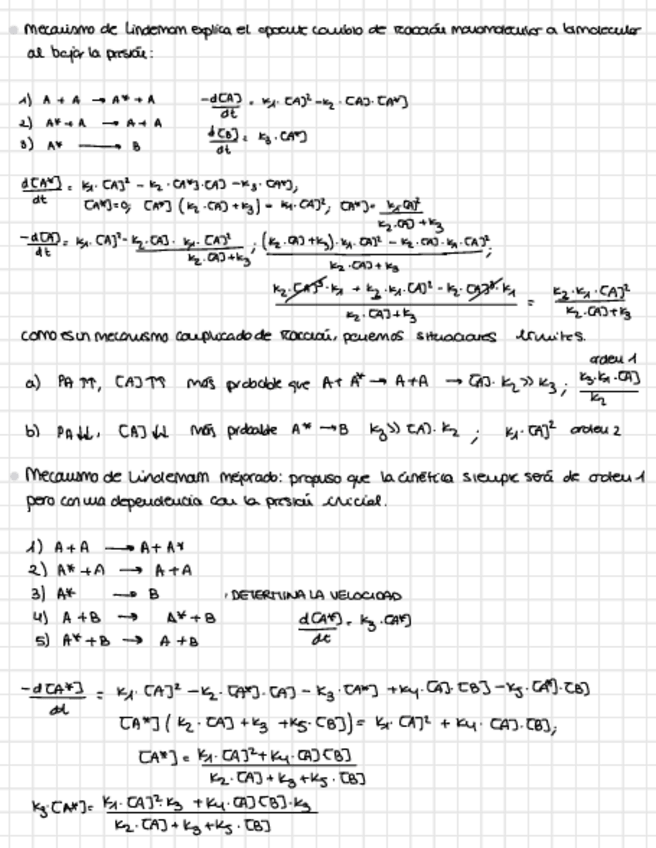 Mecanismo de Lindemam explica el aparente cambio de reacción monomolecular a bimolecular
al bajar la presión:
1) A + A → A* + A    -d[A]/dt = k1·[A]² - k2·[A]·[A*]
2) A* + A → A + A    d[B]/dt = k3·[A*]
3) A* → B
d[A*]/dt = k1·[A]² - k2·[A*]·[A] - k3·[A*];
[A*]=0; [A*] (k2·[A] + k3) = k1·[A]²; [A*] = k1·[A]² / k2·[A] + k3
-d[A]/dt = k1·[A]² - k2·[A]·k1·[A]² / k2·[A] + k3 ; (k2·[A] + k3)·k1·[A]² - k2·[A]·k1·[A]² / k2·[A] + k3 ;
k2·[A]³·k1 + k3·k1·[A]² - k2·[A]³·k1 / k2·[A] + k3 = k3·k1·[A]² / k2·[A] + k3
como es un mecanismo complicado de reacción, ponemos situaciones límites.
orden 1
a) PA ↑↑, [A] ↑↑ más probable que A + A* → A + A → [A]·k2 >> k3 ; k3·k1·[A] / k2
b) PA ↓↓, [A] ↓↓ más probable A* → B k3 >> [A]·k2 ; k1·[A]² orden 2
Mecanismo de Lindemam mejorado: propuso que la cinética siempre será de orden 1
pero con una dependencia con la presión inicial.
1) A + A → A + A*
2) A* + A → A + A
3) A* → B , DETERMINA LA VELOCIDAD
4) A + B → A* + B    d[A*]/dt = k3·[A*]
5) A* + B → A + B
-d[A*]/dt = k1·[A]² - k2·[A*]·[A] - k3·[A*] + k4·[A]·[B] - k5·[A*]·[B]
[A*] (k2·[A] + k3 + k5·[B]) = k1·[A]² + k4·[A]·[B];
[A*] = k1·[A]² + k4·[A][B] / k2·[A] + k3 + k5·[B]
k3·[A*] = k1·[A]²·k3 + k4·[A][B]·k3 / k2·[A] + k3 + k5·[B]